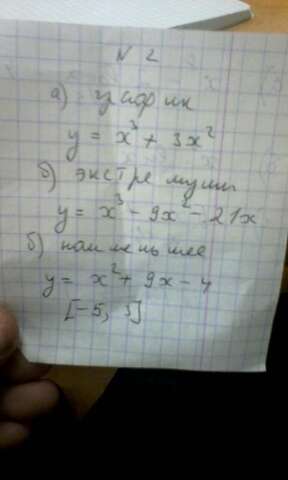 N 2
а) график
y = x³ + 3x²
б) экстремумы
y = x³ - 9x² - 21x
б) наименьшее
y = x² + 9x - 4
[-5, 3]